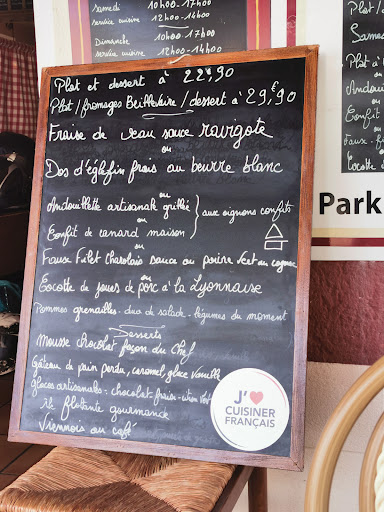 samedi 10h00-17h00
service cuisine 12h00-14h00
Dimanche 10h00-17h00
service cuisine 12h00-14h00
Plat et dessert à 22€90
Plat/fromages Beillevaire/dessert à 29,€90
Fraise de veau sauce ravigote
ou
Dos d'églefin frais au beurre blanc
ou
Andouillette artisanale grillée
ou
Confit de canard maison
aux oignons confits
ou
Faux Filet Charolais sauce au poivre Vert au cognac
ou
Cocotte de joues de porc à la Lyonnaise
Pommes grenailles - duo de salade - légumes du moment
Desserts
Mousse chocolat façon du Chef
Gâteau de pain perdu, caramel, glace vanille
Glaces artisanales: chocolat-fraise-citron Vert
île flotante gourmande
Viennois au café
J'
CUISINER
FRANÇAIS
Plat/
Samed
ou
Andouil
ou
Confit
ou
Faux-fi
ou
Cocotte
Park